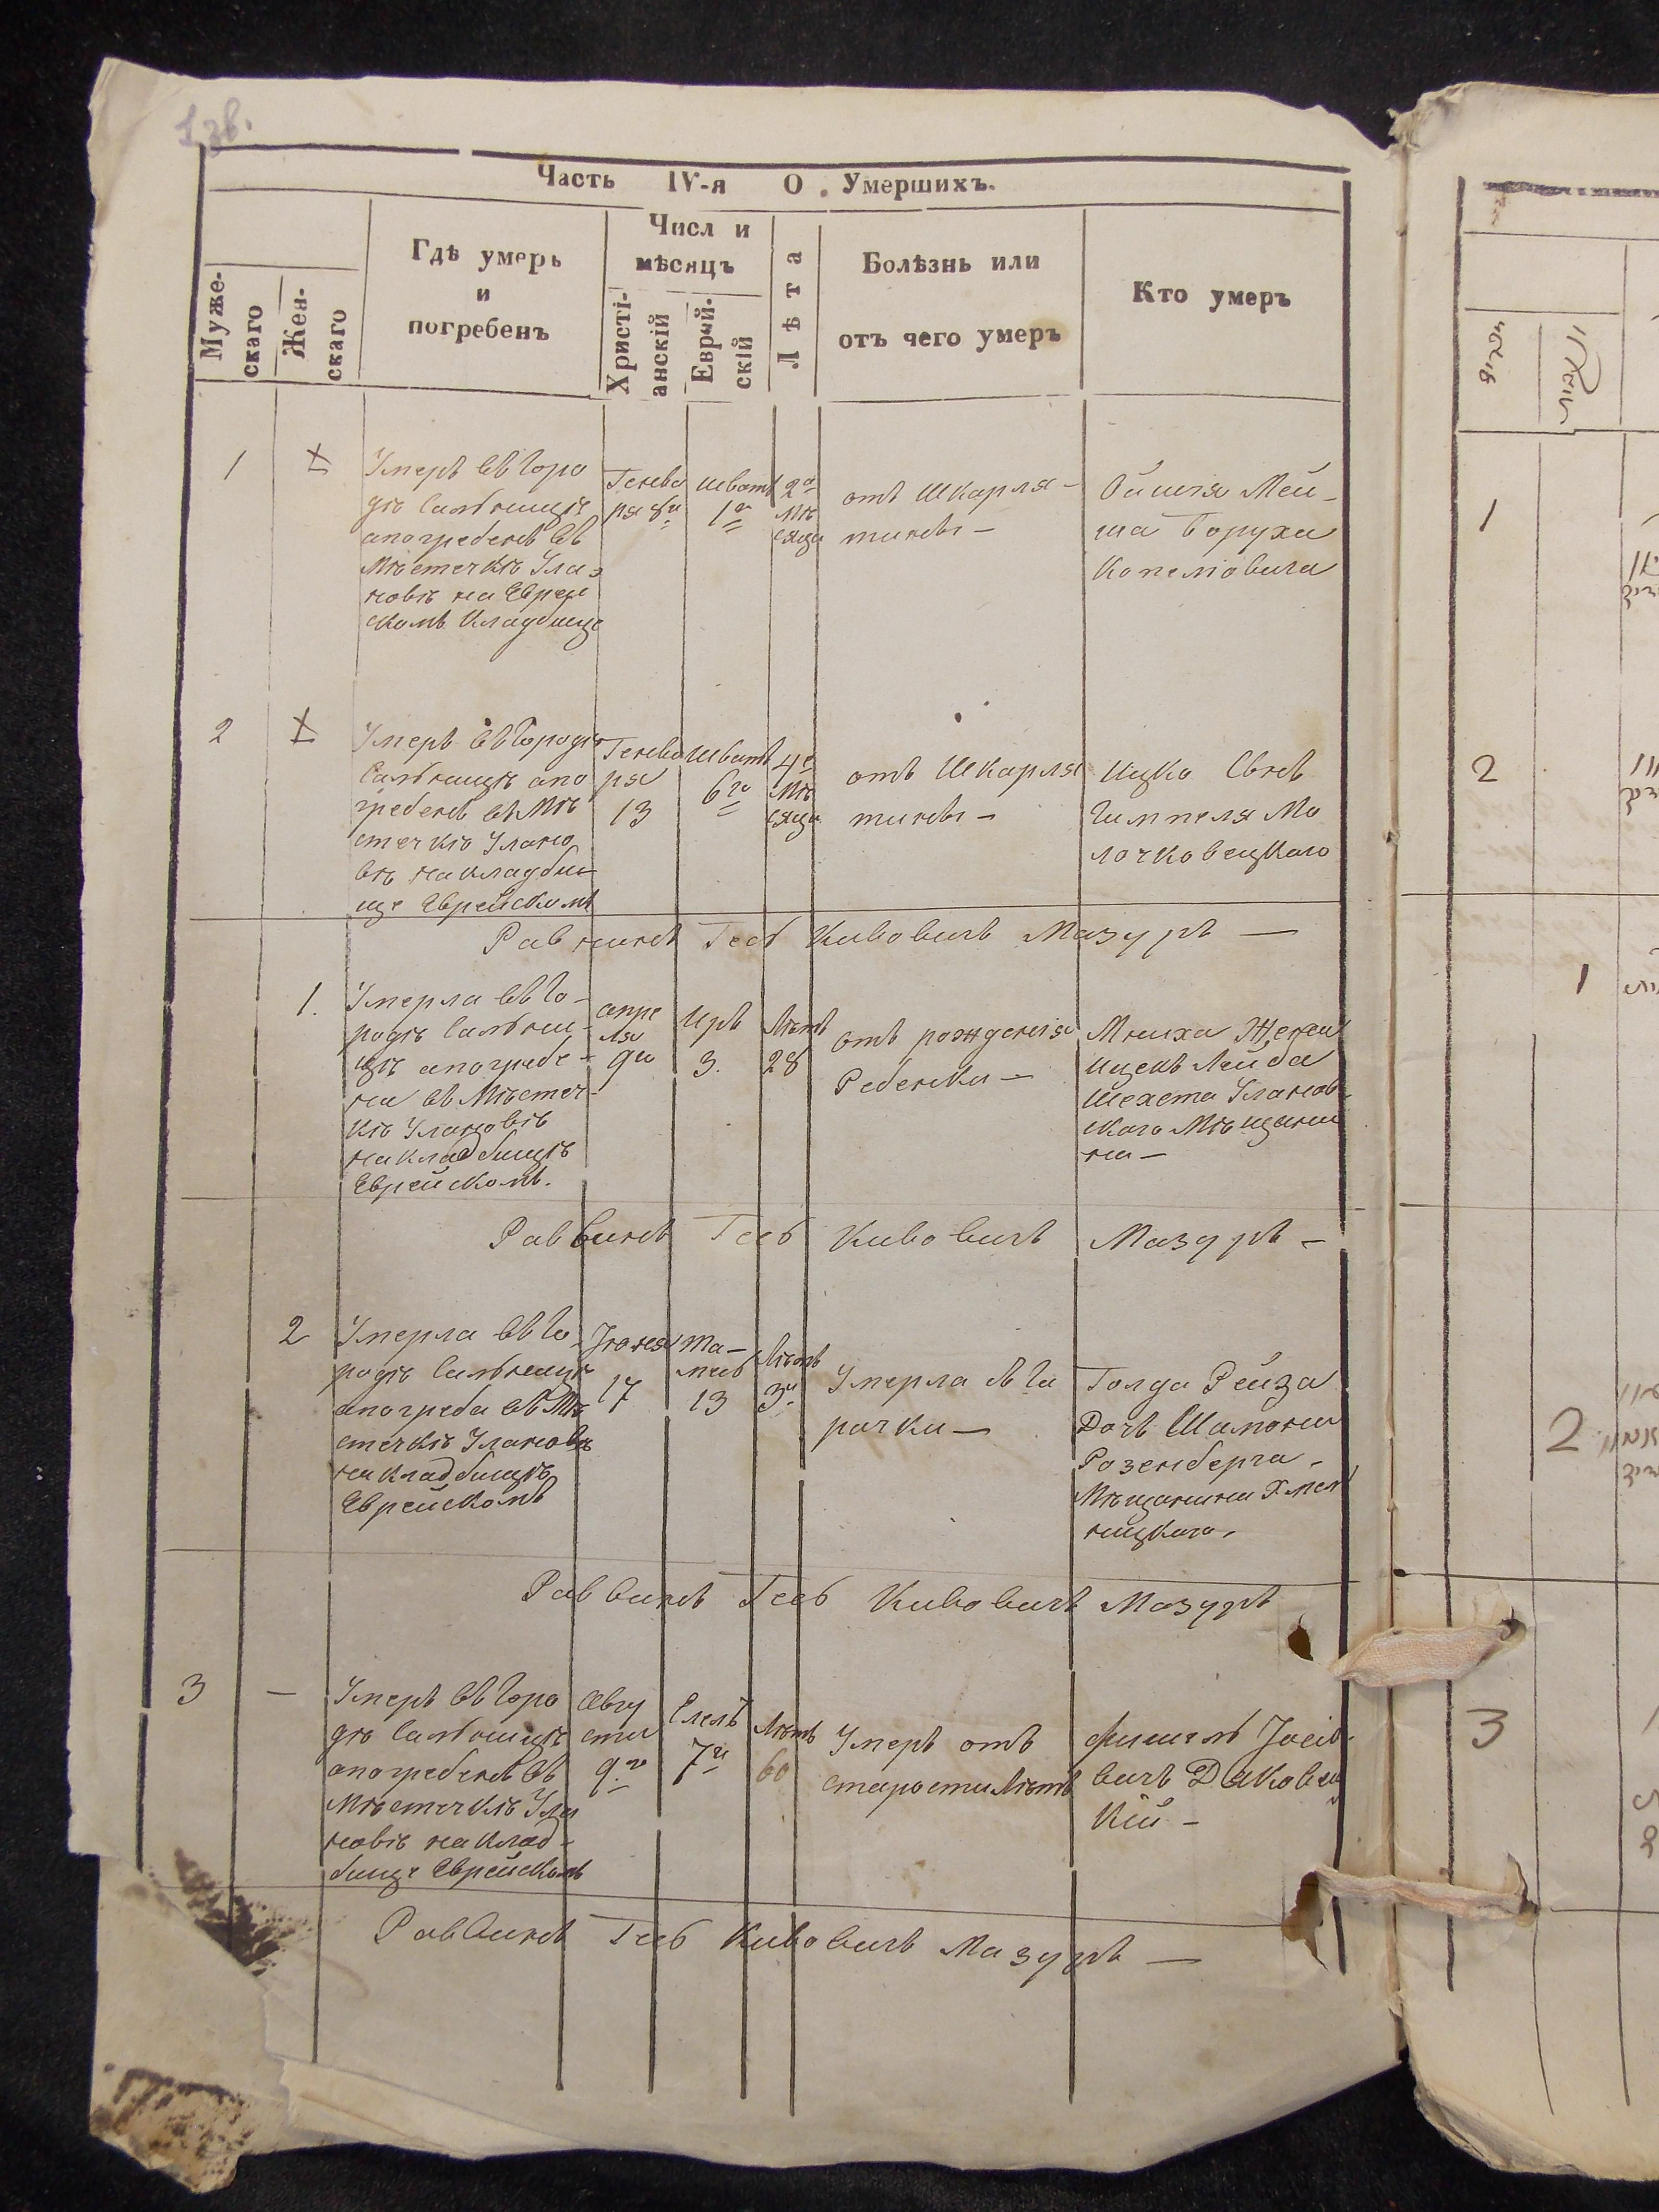 1 зв.
Часть IV-я О Умершихъ.
Муже-
скаго
Жен-
скаго
Гдѣ умеръ
и
погребенъ
Числ и
мѣсяцъ
Христі-
анскій
Еврей-
скій
Лѣта
Болѣзнь или
отъ чего умеръ
Кто умеръ
1
Умеръ въ горо
дѣ Сальницѣ
апогребенъ въ
Мѣстечкѣ Ула-
новѣ на Еврей
скомъ Кладбище
Генва
ря 8го
Шватъ
1го
2а
мѣ
сяца
отъ Шкарля-
тины -
Ойшія Мой-
ша Боруха
Копеліовича
2
Умеръ въ Городѣ
Сальницѣ апо
гребенъ въ Мѣ
стечкѣ Улано
вѣ на кладби-
ще Еврейскомъ
Генва
ря
13
Шватъ
6го
4е
Мѣ
сяца
отъ Шкарля
тины -
Ицко Сынъ
Гимпеля Мо
лочковецкаго
Раввинъ Гесь Кивовичъ Мазуръ -
1.
Умерла въ Го-
родѣ Сальни-
цѣ апогребе-
на въ Мѣстеч-
кѣ Улановѣ
на кладбищѣ
Еврейскомъ.
апре
ля
9го
Иръ
3.
Лѣтъ
28
отъ рожденія
Ребенка -
Мниха Жена
Ицекъ Лейба
Шехета Уланов-
скаго Мѣщани
на -
Раввинъ Гесь Кивовичъ Мазуръ -
2
Умерла въ Го
родѣ Сальницѣ
апогреба въ Мѣ
стечкѣ Улановѣ
на кладбищѣ
Еврейскомъ
Іюня
17
Та-
мусъ
13
Лѣтъ
3и
Умерла въ Га
рачки -
Голда Рейза
Дочъ Шамона
Розенберга -
Мѣщанина Хмел
ницкаго.
Раввинъ Гесь Кивовичъ Мазуръ
3
-
Умеръ въ Горо
дѣ Сальницѣ
апогребенъ въ
Мѣстечкѣ Ула
новѣ на Клад-
бище Еврейскомъ
Авгу
ста
9го
Елель
7и
Лѣтъ
60
Умеръ отъ
старости Лѣтъ
Фишель Іосіо-
вичъ Дяковец
кій -
Раввинъ Гесь Кивовичъ Мазуръ -
1
2
1
2
3